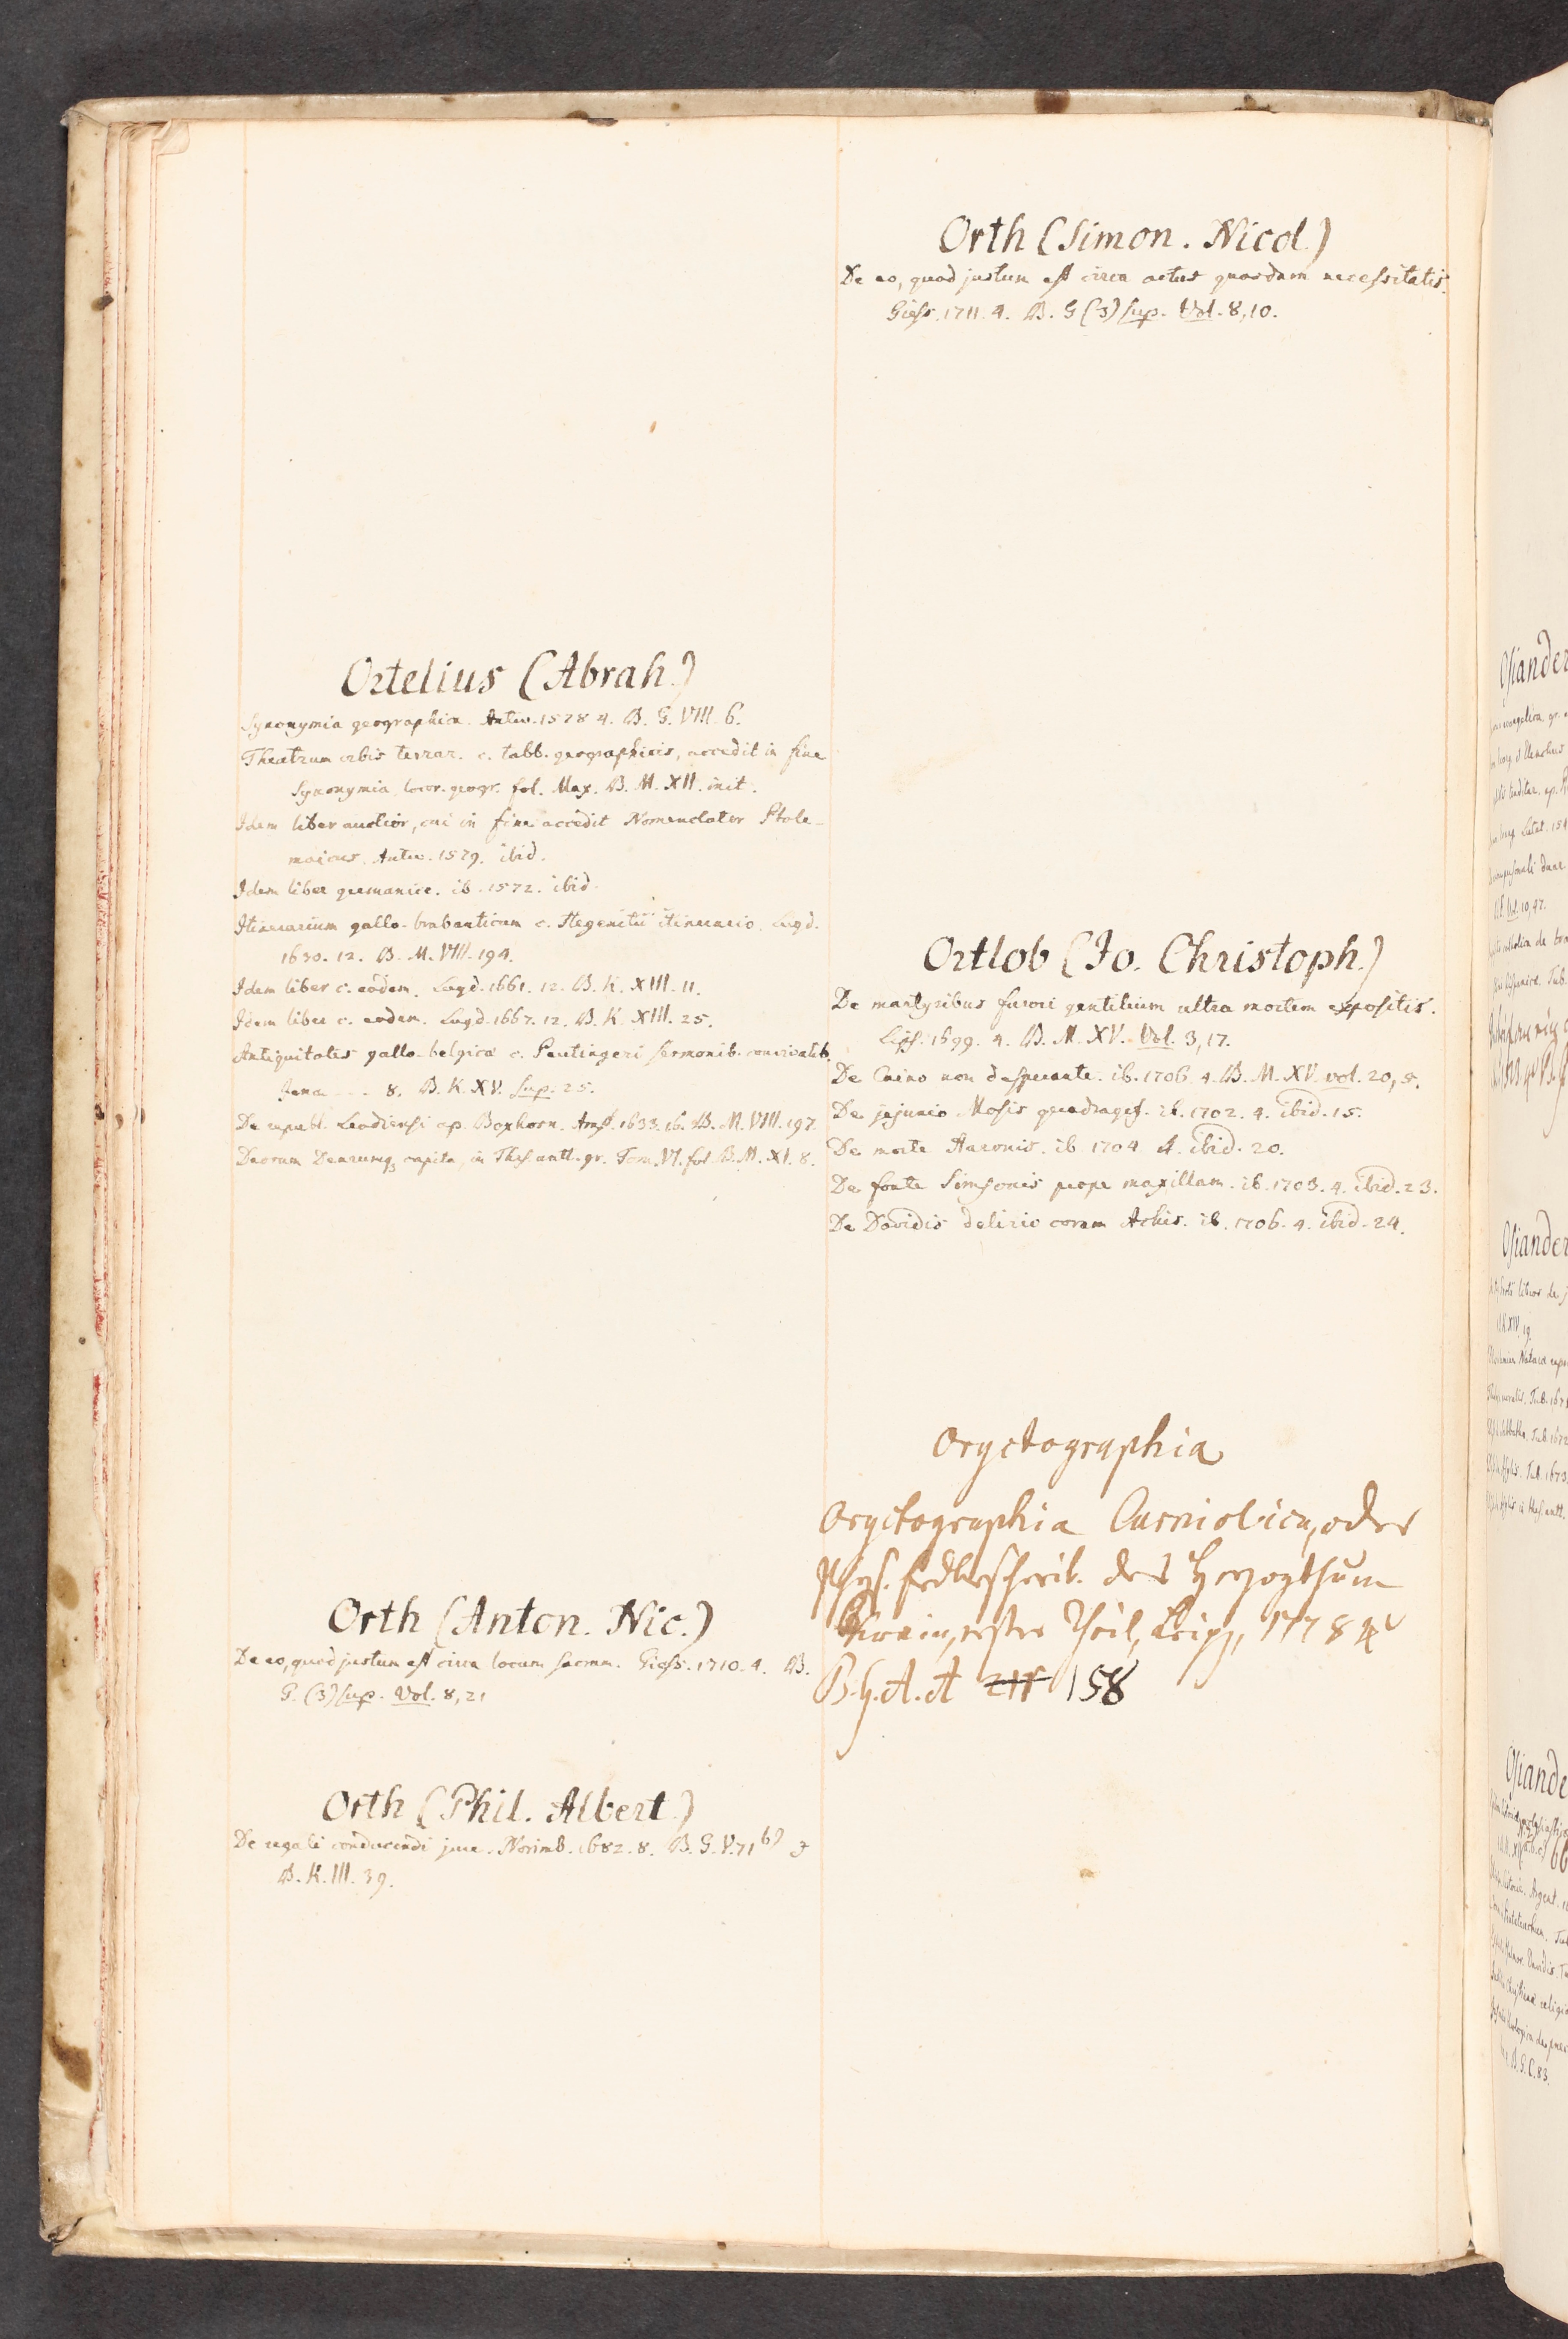 Ortelius (Abrah.)
Synonymia geographica. Antw. 1578 4. B. G. VIII. 6.
Theatrum orbis terrar. c. tabb. geographicis, accedit in fine
Synonymia locor. geogr. fol. Max. B. M. XII. init.
Idem liber auctior, cui in fine accedit Nomenclator Ptole-
maicus. Antw. 1579. ibid.
Idem liber germanice. ib. 1572. ibid.
Itinerarium gallo-brabanticum c. Hegenitii itinerario. Lugd.
1630. 12. B. M. VIII. 194.
Idem liber c. eodem. Lugd. 1661. 12. B. K. XIII. 11.
Idem liber c. eodem. Lugd. 1667. 12. B. K. XIII. 25.
Antiquitates gallo-belgicæ c. Peutingeri sermonib. convivalib.
Jenæ --- 8. B. K. XV. sup. 25.
De republ. Leodiensi ap. Boxhorn. Amst. 1633. 16. B. M. VIII. 197.
Deorum Dearumq; capita, in Thes. antt. gr. Tom. VI. fol. B. M. XI. 8.
Orth (Anton. Nic.)
De eo, quod justum est circa locum sacrum. Giess. 1710. 4. B.
G. (3) sup. Vol. 8, 21
Orth (Phil. Albert.)
De regali conducendi jure. Norimb. 1682. 8. B. G. V. 71 b) &
B. K. III. 39.
Orth (Simon. Nicol.)
De eo, quod justum est circa actus quosdam necessitatis.
Giess. 1711. 4. B. G (3) sup. Vol. 8, 10.
Ortlob (Jo. Christoph.)
De martyribus furori gentilium ultra mortem expositis.
Lips. 1699. 4. B. M. XV. Vol. 3, 17.
De Caino non desperante. ib. 1706. 4. B. M. XV. vol. 20, 5.
De jejunio Mosis quadrages. ib. 1702. 4. ibid. 15.
De morte Aaronis. ib. 1704. 4. ibid. 20.
De fonte Simsonis prope maxillam. ib. 1703. 4. ibid. 23.
De Davidis delirio coram Achis. ib. 1706. 4. ibid. 24.
Oryctographia
Oryctographia Carniolica, oder
Phys. Erdbeschreib. des Herzogthum
Krain, erster Theil, Leipz, 1778 4
B. G. A. A 158